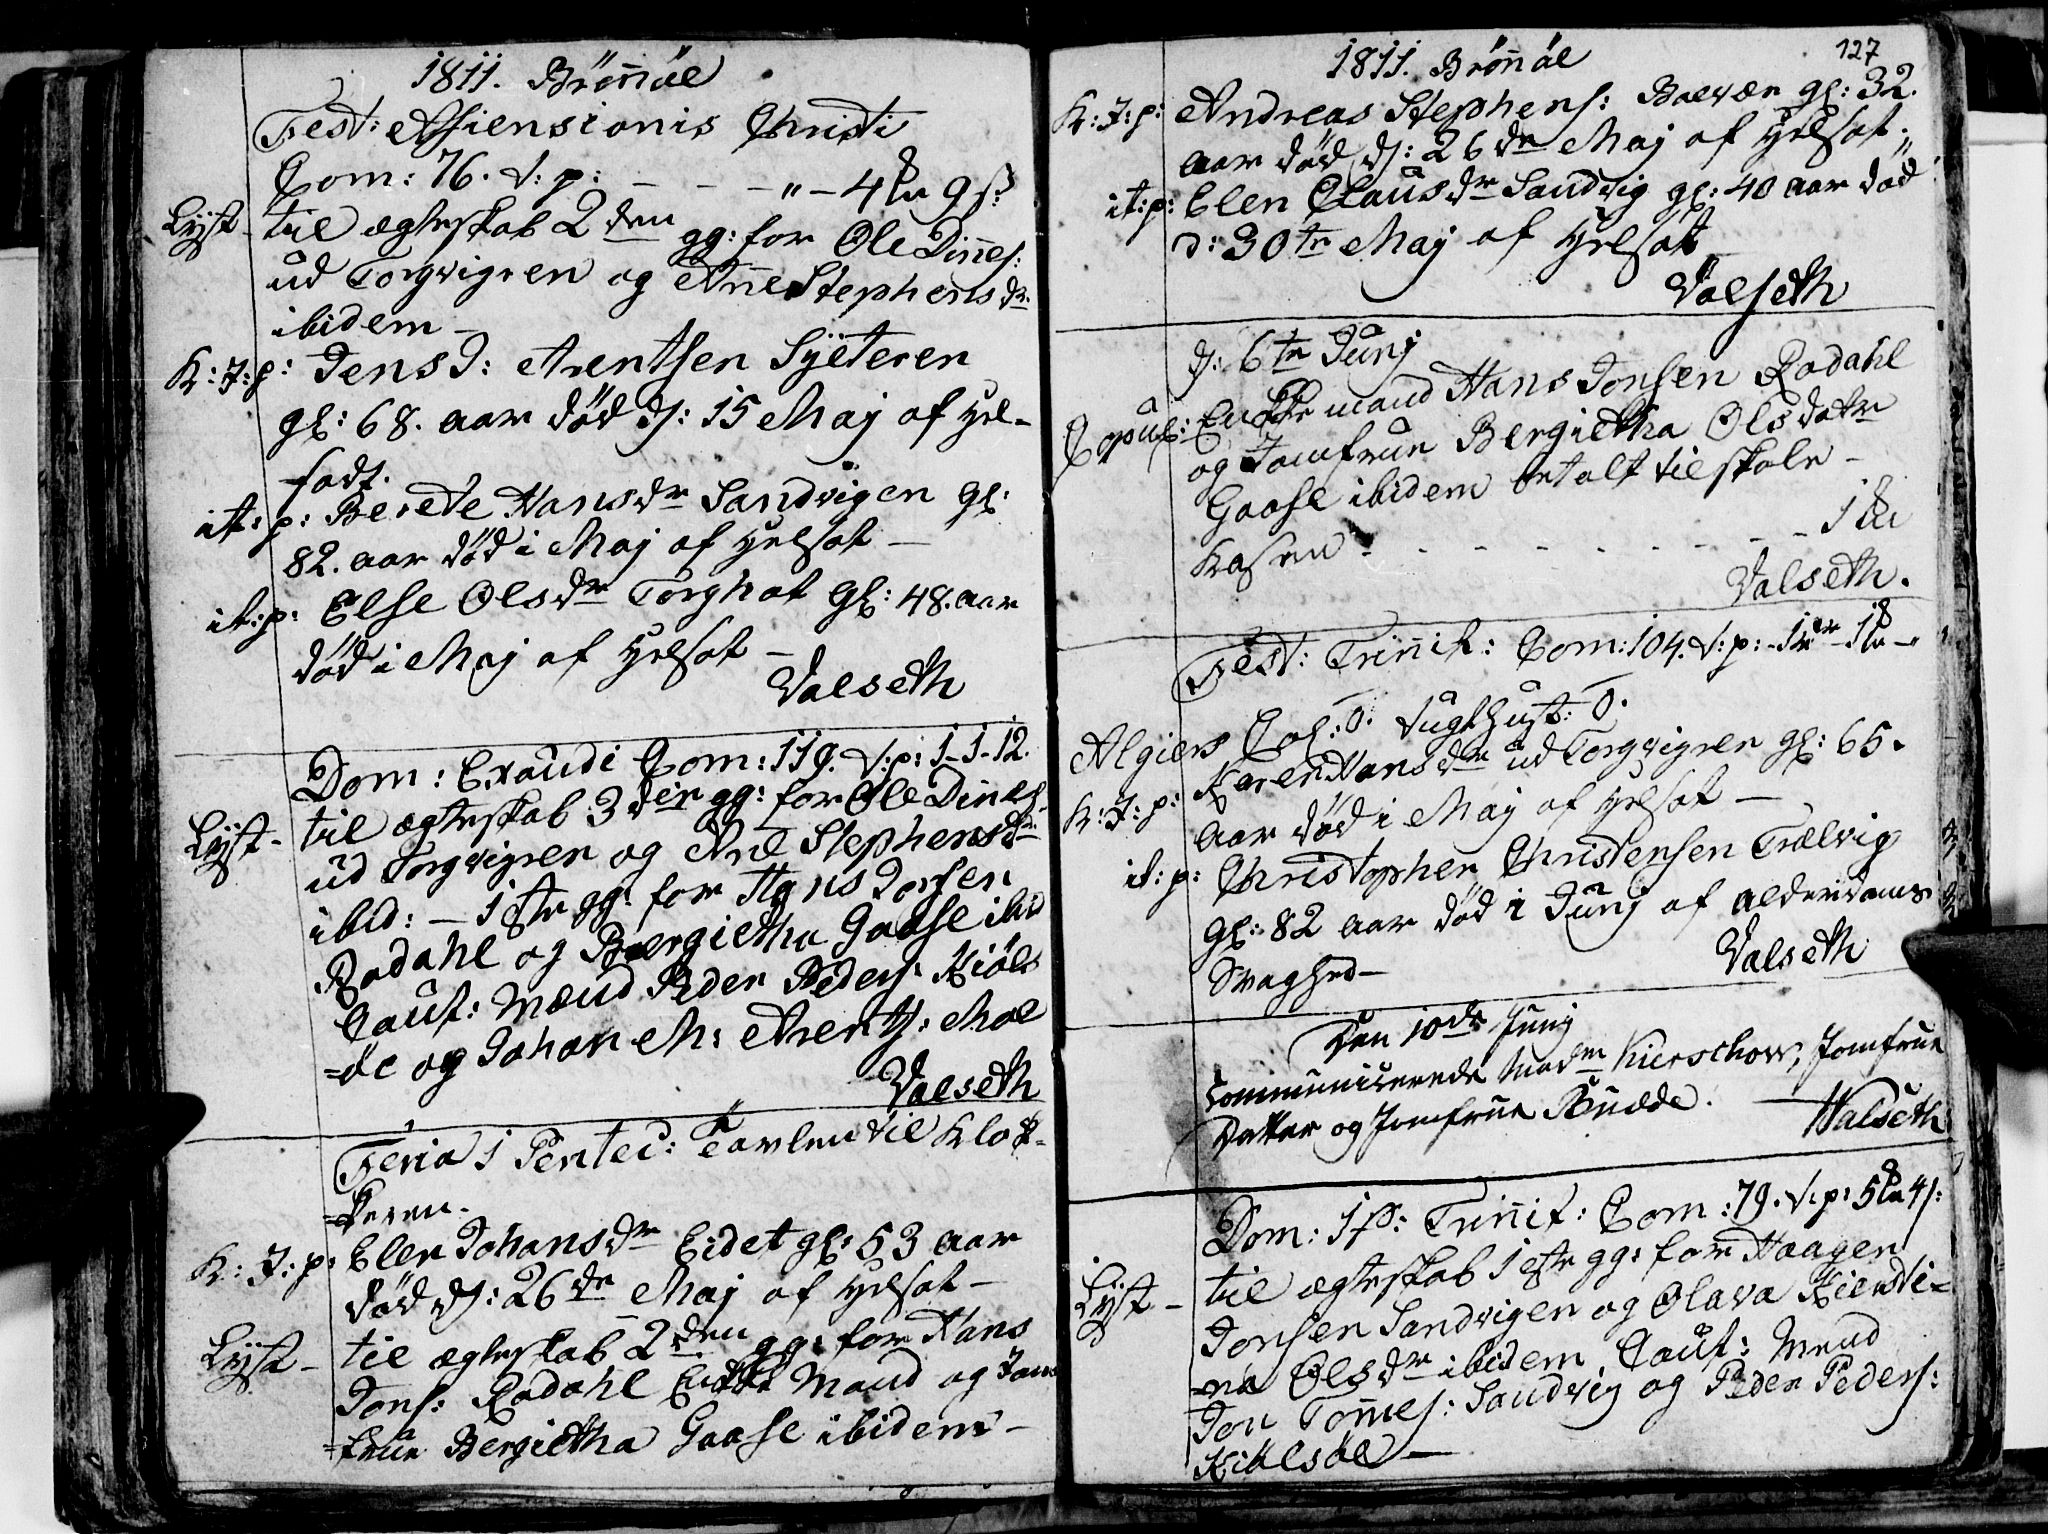 1811. Brönnöe
Fest: Assiensionis Christi
Com: 76. t: p: - - - " - 4 9 s:
Lyst - til ægteskab 2den gg: for Ole Dines:
ud Torgvigren og Anne Stephensdr
ibidem -
K: J: p: Jens J: Arentsen Syeteren
gl: 68. aar død d: 15 Maj af Hel-
sodt.
it: p: Berete Hansdr Sandvigen gl:
82. aar død i Maj af Helsot -
it: p: Else Olsdr Torghat gl: 48. aar
død i Maj af Helsot -
Valseth
Dom: Exaudi Com: 119. t: p: 1-1-12.
Lyst - til ægteskab 3die gg: for Ole Dines:
ud Torgvigren og Ane Stephensdr
ibid: - 1ste gg: for Hans Jonsen
Rodahl og Bergietha Gaase ibid
Caut: Mænd Peder Peders: Kiöls
=öe og Johan M: Arents: Moe
Valseth
Feria 1 Pentec: Tavlen til Klok-
=keren.
K: J: p: Elen Johansdr Eidet gl: 53 aar
død d: 26de Maj af Helsot -
Lyst - til ægteskab 2den gg: for Hans
Jons: Rodahl Enke Mand og Jom
=frue Bergietha Gaase ibidem -
1811. Brönnöe
127
K: J: p: Andreas Stephens: Bolvær gl: 32.
aar død d: 26de Maj af Helsot.
it: p: Elen Clausdr Sandvig gl: 40 aar død
d: 30te Maj af Helsot
Valseth
d: 6te Junj
Copul: Enke mand Hans Jonsen Rodahl
og Jomfrue Bergietha Olsdatr
Gaase ibidem betalt til skole
Kasen - - - - - - - 1
Valseth.
Fest: Trinnit: Com: 104. t: p: - 1
Algiers Col: 0. Tugthust: 0.
K: J: p: Karen Hansdr ud Torgvigren gl: 65.
aar død i Maj af Helsot -
it: p: Christopher Christensen Trælvig
gl: 82 aar død i Junj af alderdoms
Svaghed -
Valseth
Den 10de Junj
Communicerede Madm Kierschow, Jomfrue
Datter og Jomfrue
Valseth
Dom: 1 p: Trinnit: Com: 79. t: p: 5 4 s:
Lyst - til ægteskab 1ste gg: for Haagen
Jonsen Sandvigen og Olava Kiersti-
=na Olsdr ibidem, Caut: Mænd
Jon Tomes: Sandvig og Peder Peders:
Kiölsöe -